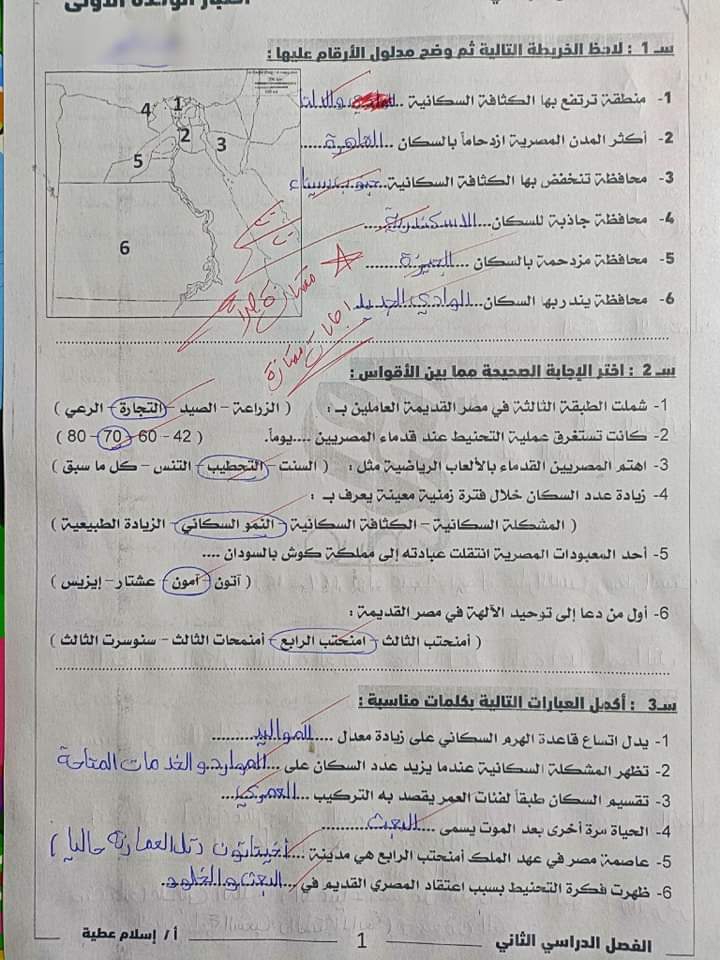 اختبار الوحدة الأولى
سـ 1 : لاحظ الخريطة التالية ثم وضح مدلول الأرقام عليها :
1- منطقة ترتفع بها الكثافة السكانية ... والدلتا
2- أكثر المدن المصرية ازدحاماً بالسكان ... القاهرة
3- محافظة تنخفض بها الكثافة السكانية... جنوب سيناء
4- محافظة جاذبة للسكان... الاسكندرية
5- محافظة مزدحمة بالسكان ... الجيزة
6- محافظة يندر بها السكان... الوادي الجديد
1
2
3
4
5
6
ممتازة
إجابات ممتازة
سـ 2 : اختر الإجابة الصحيحة مما بين الأقواس :
1- شملت الطبقة الثالثة في مصر القديمة العاملين بـ : ( الزراعة - الصيد - التجارة - الرعي )
2- كانت تستغرق عملية التحنيط عند قدماء المصريين ....يوماً. ( 42 - 60 - 70 - 80 )
3- اهتم المصريين القدماء بالألعاب الرياضية مثل : ( السنت - التحطيب - التنس - كل ما سبق )
4- زيادة عدد السكان خلال فترة زمنية معينة يعرف بـ :
( المشكلة السكانية - الكثافة السكانية - النمو السكاني - الزيادة الطبيعية )
5- أحد المعبودات المصرية انتقلت عبادته إلى مملكة كوش بالسودان ....
( آتون - آمون - عشتار - إيزيس )
6- أول من دعا إلى توحيد الآلهة في مصر القديمة :
( أمنحتب الثالث - امنحتب الرابع - أمنمحات الثالث - سنوسرت الثالث )
سـ3 : أكمل العبارات التالية بكلمات مناسبة :
1- يدل اتساع قاعدة الهرم السكاني على زيادة معدل ... المواليد
2- تظهر المشكلة السكانية عندما يزيد عدد السكان على ... الموارد والخدمات المتاحة
3- تقسيم السكان طبقاً لفئات العمر يقصد به التركيب ... العمري
4- الحياة مرة أخرى بعد الموت يسمى ... البعث
5- عاصمة مصر في عهد الملك أمنحتب الرابع هي مدينة ... أخيتاتون (تل العمارنة حاليا)
6- ظهرت فكرة التحنيط بسبب اعتقاد المصري القديم في ... البعث والخلود
الفصل الدراسي الثاني
1
أ / إسلام عطية